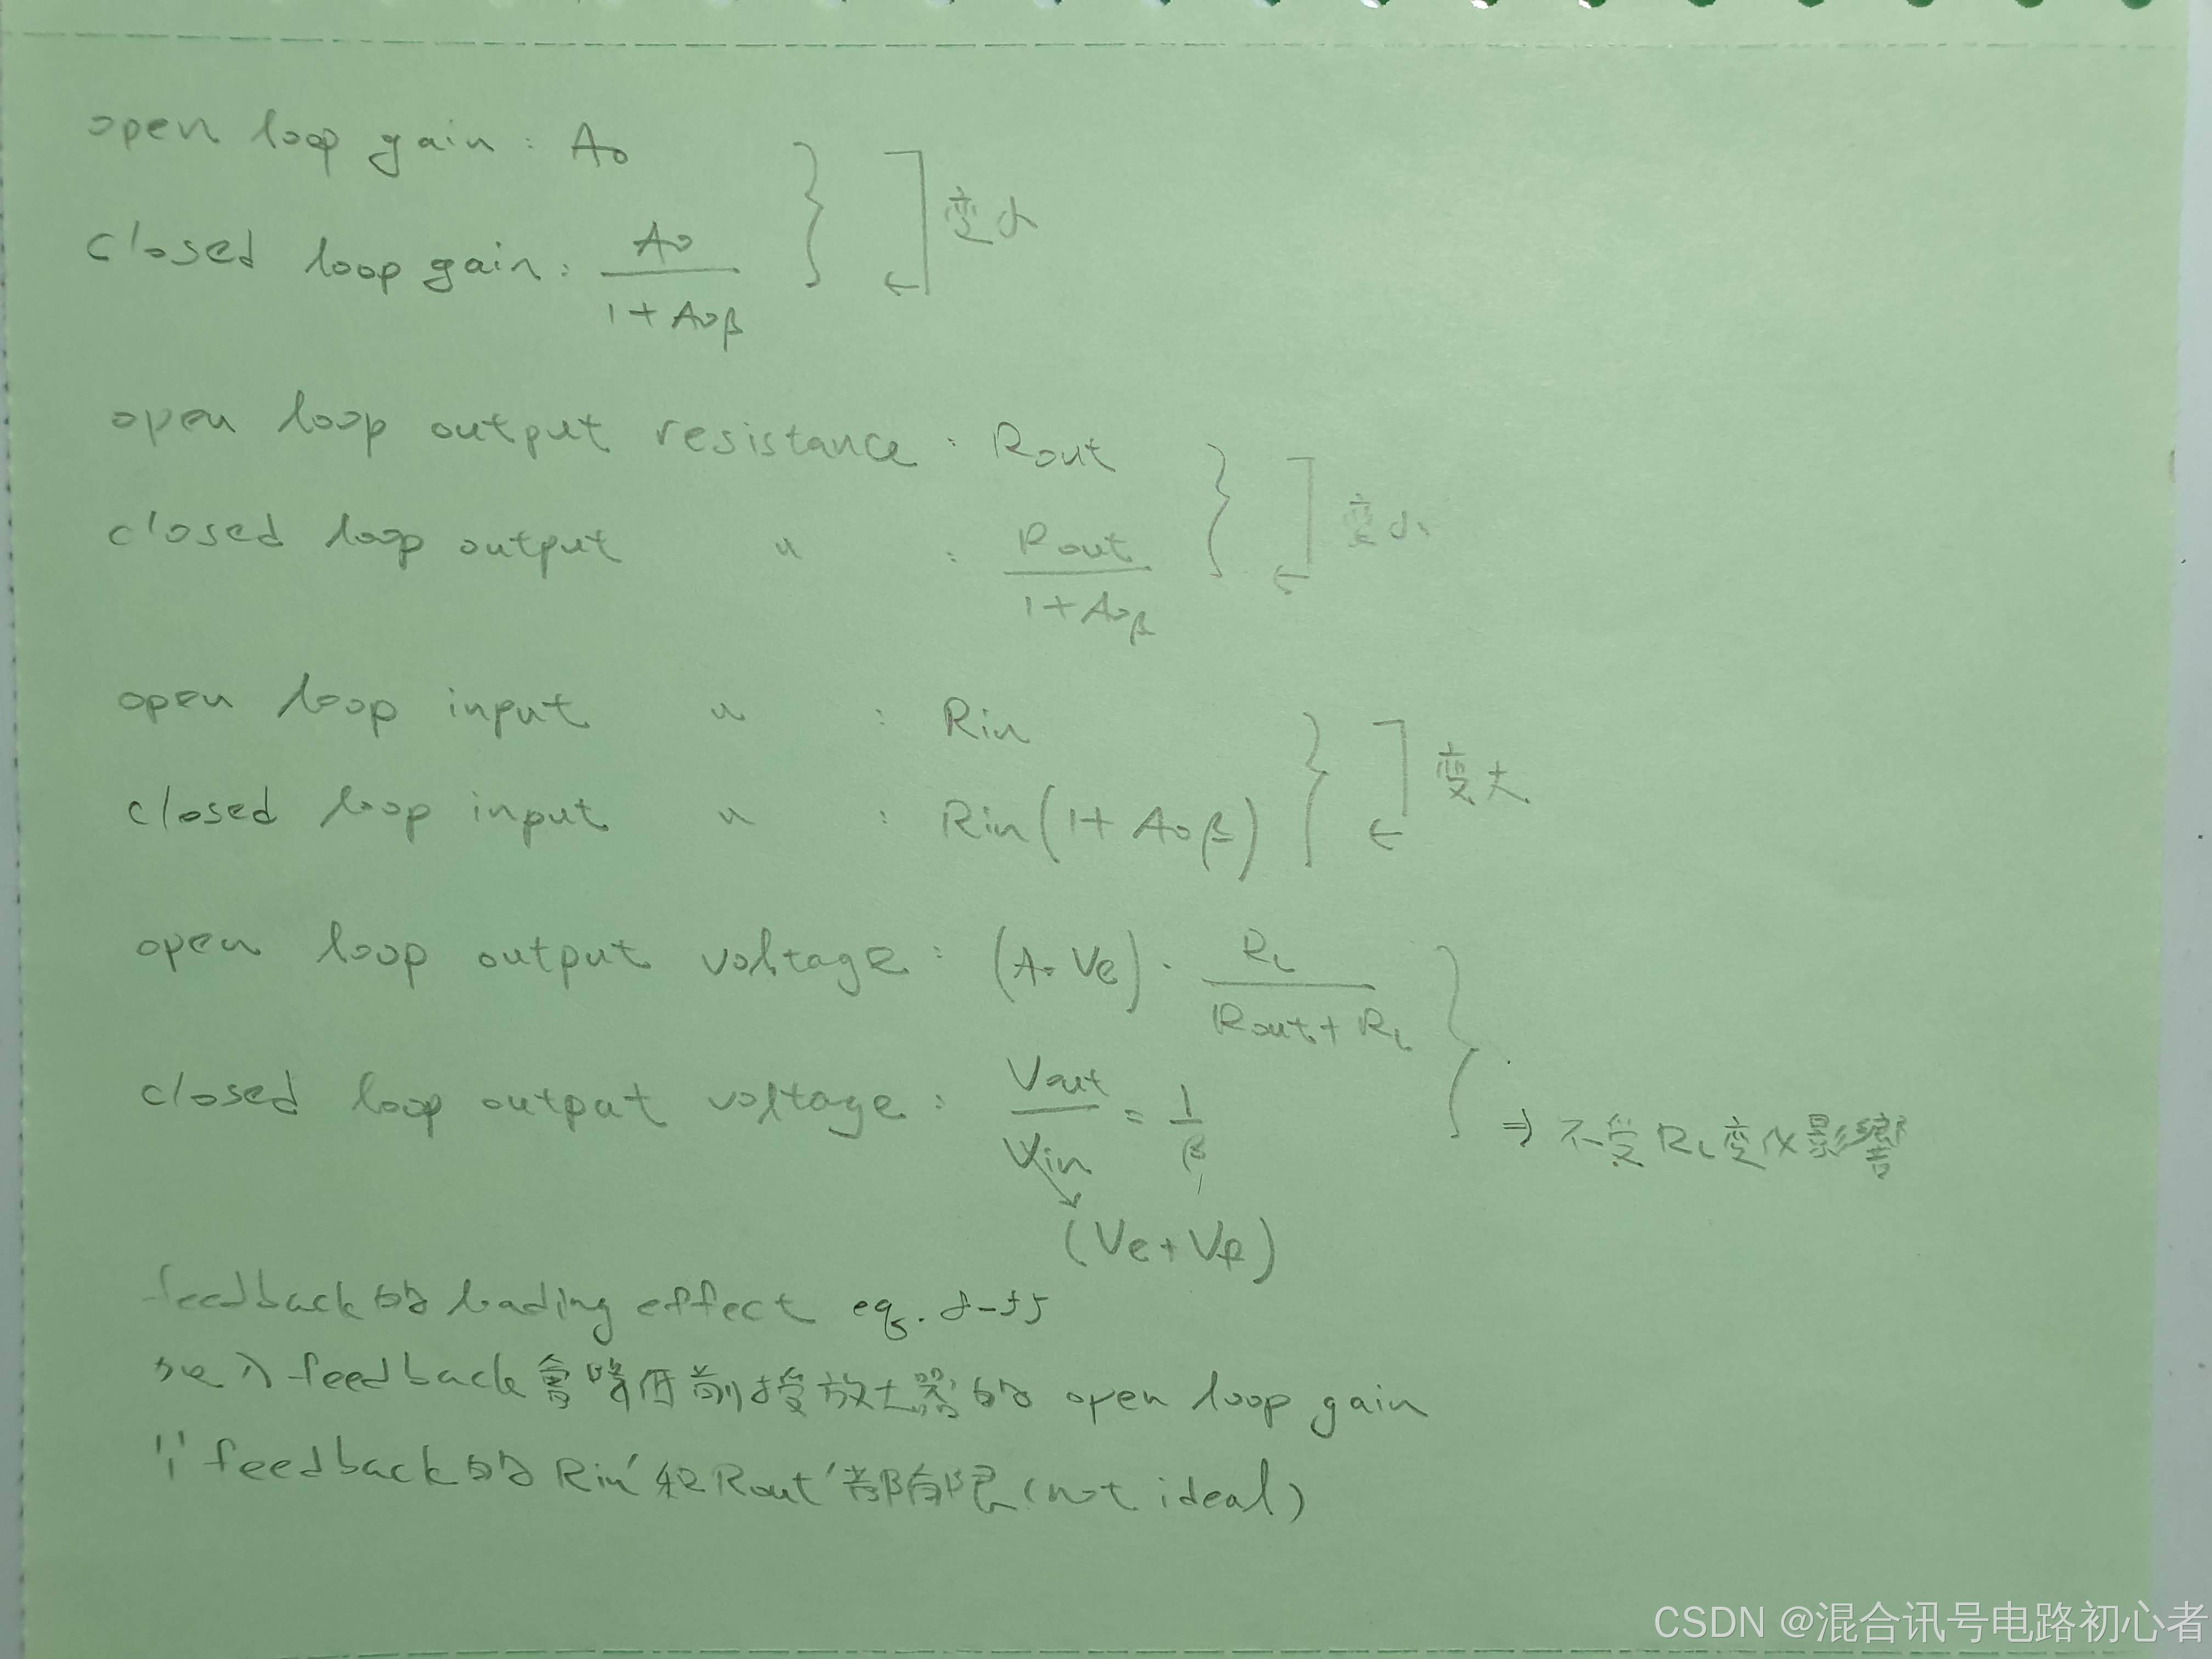 open loop gain : A₀
closed loop gain : A₀ / (1 + A₀β) } 变小
open loop output resistance : Rout
closed loop output 〃 : Rout / (1 + A₀β) } 变小
open loop input 〃 : Rin
closed loop input 〃 : Rin (1 + A₀β) } 变大
open loop output voltage : (A₀ Ve) · RL / (Rout + RL)
closed loop output voltage : Vout / Vin = 1 / β } ⇒ 不受 RL 变化影響
(Ve + VF)
feedback的 loading effect eq.
加入feedback會降低前授放大器的 open loop gain
∵ feedback的 Rin' 和 Rout' 都有限 (not ideal)
CSDN @混合讯号电路初心者